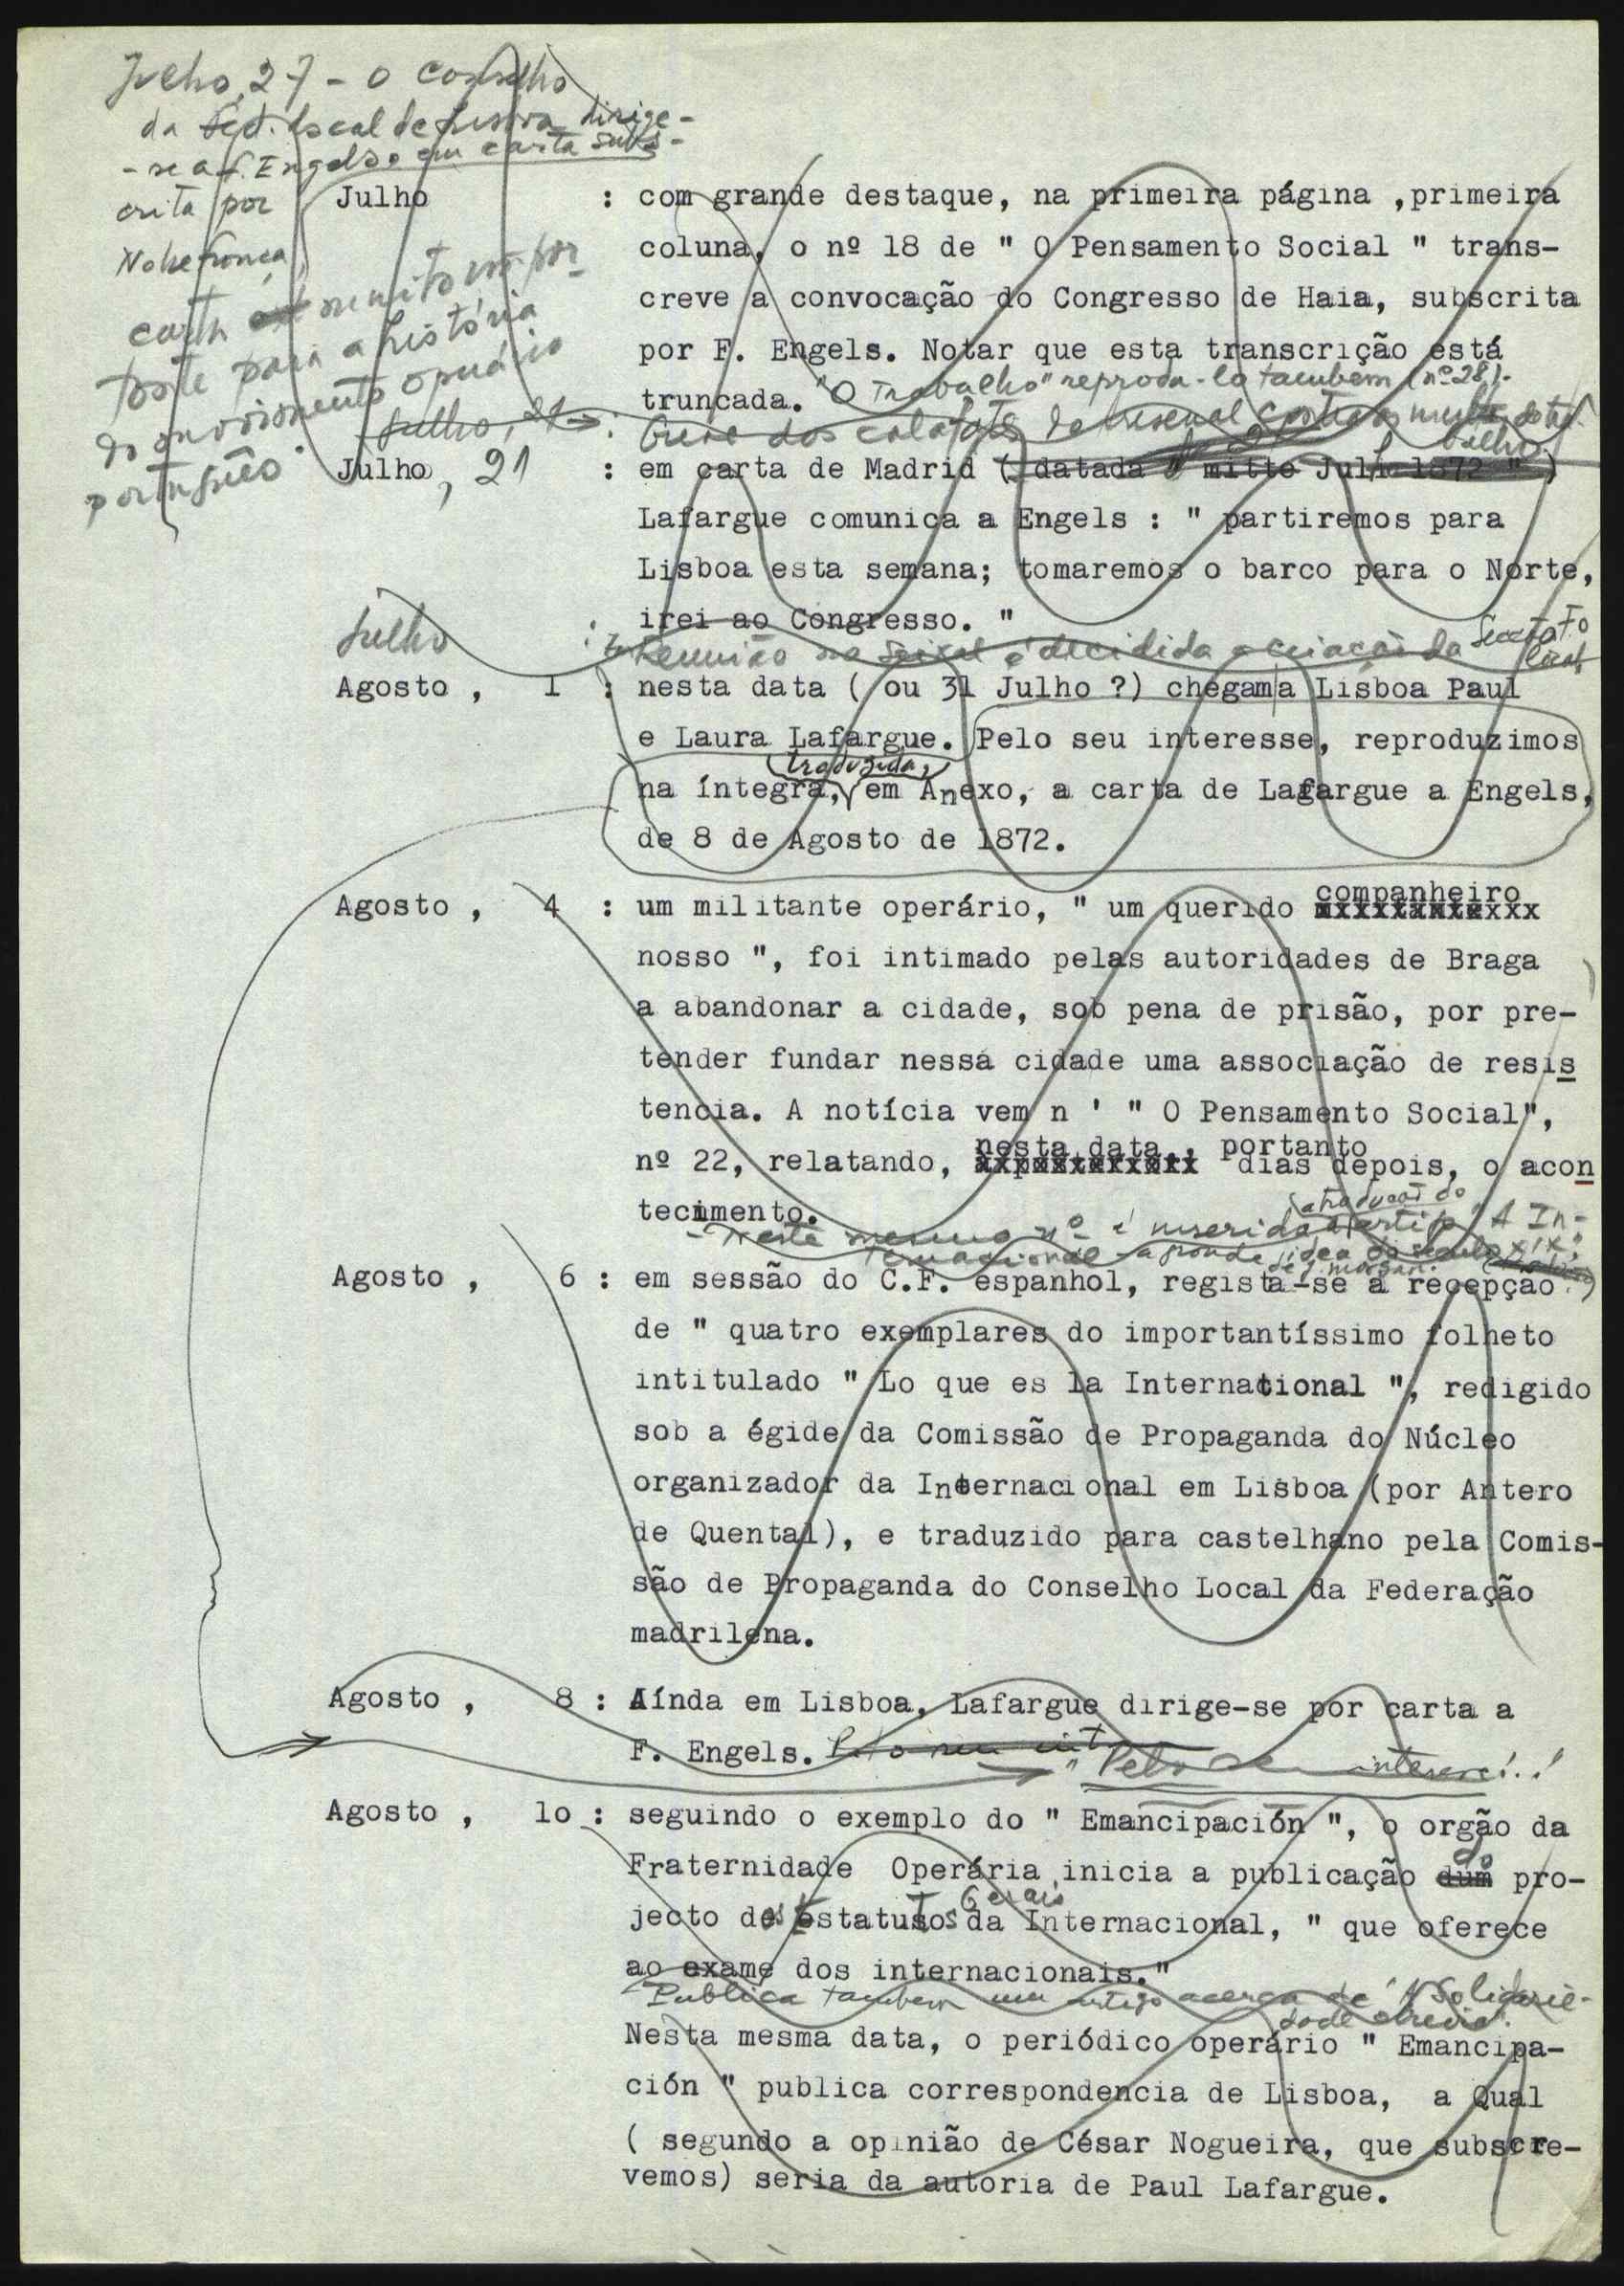 Julho, 27 - O Conselho
da Fed. Local de Lisboa dirige-
-se a F. Engels em carta subs-
crita por
Nobre França,
carta muito impor-
tante para a história
do movimento operário
português.
Julho : com grande destaque, na primeira página ,primeira
coluna, o nº 18 de " O Pensamento Social " trans-
creve a convocação do Congresso de Haia, subscrita
por F. Engels. Notar que esta transcrição está
truncada. "O Trabalho" reprodu-lo também (nº 28).
Julho, 21 → : Greve dos calafates do Arsenal contra as
balho.
Julho, 21 : em carta de Madrid ( datada " mitte Juli 1872 " )
Lafargue comunica a Engels : " partiremos para
Lisboa esta semana; tomaremos o barco para o Norte,
irei ao Congresso. "
Julho : Reunião no Seixal é decidida a criação da
local
Agosto , 1 : nesta data ( ou 31 Julho ?) chegam a Lisboa Paul
e Laura Lafargue. Pelo seu interesse, reproduzimos
traduzida,
na íntegra, em Anexo, a carta de Lafargue a Engels,
de 8 de Agosto de 1872.
Agosto , 4 : um militante operário, " um querido companheiro
nosso ", foi intimado pelas autoridades de Braga
a abandonar a cidade, sob pena de prisão, por pre-
tender fundar nessa cidade uma associação de resis
tencia. A notícia vem n ' " O Pensamento Social",
nº 22, relatando, nesta data , portanto dias depois, o acon
tecimento.
a tradução do
- Neste mesmo nº é inserida artigo " A In-
ternacional - a grande ideia do século XIX"
de J. Morgan.
Agosto , 6 : em sessão do C.F. espanhol, regista-se a recepção
de " quatro exemplares do importantíssimo folheto
intitulado " Lo que es la International ", redigido
sob a égide da Comissão de Propaganda do Núcleo
organizador da Internacional em Lisboa (por Antero
de Quental), e traduzido para castelhano pela Comis-
são de Propaganda do Conselho Local da Federação
madrilena.
Agosto , 8 : Aínda em Lisboa, Lafargue dirige-se por carta a
F. Engels. Pelo seu int
" Pelo seu interesse...!
Agosto , lo : seguindo o exemplo do " Emancipación ", o orgão da
Fraternidade Operária inicia a publicação dum do pro-
jecto dos Estatutos Gerais da Internacional, " que oferece
ao exame dos internacionais."
Publica também um artigo acerca de "A Solidarie-
dade obreira".
Nesta mesma data, o periódico operário " Emancipa-
ción " publica correspondencia de Lisboa, a Qual
( segundo a opinião de César Nogueira, que subscre-
vemos) seria da autoria de Paul Lafargue.